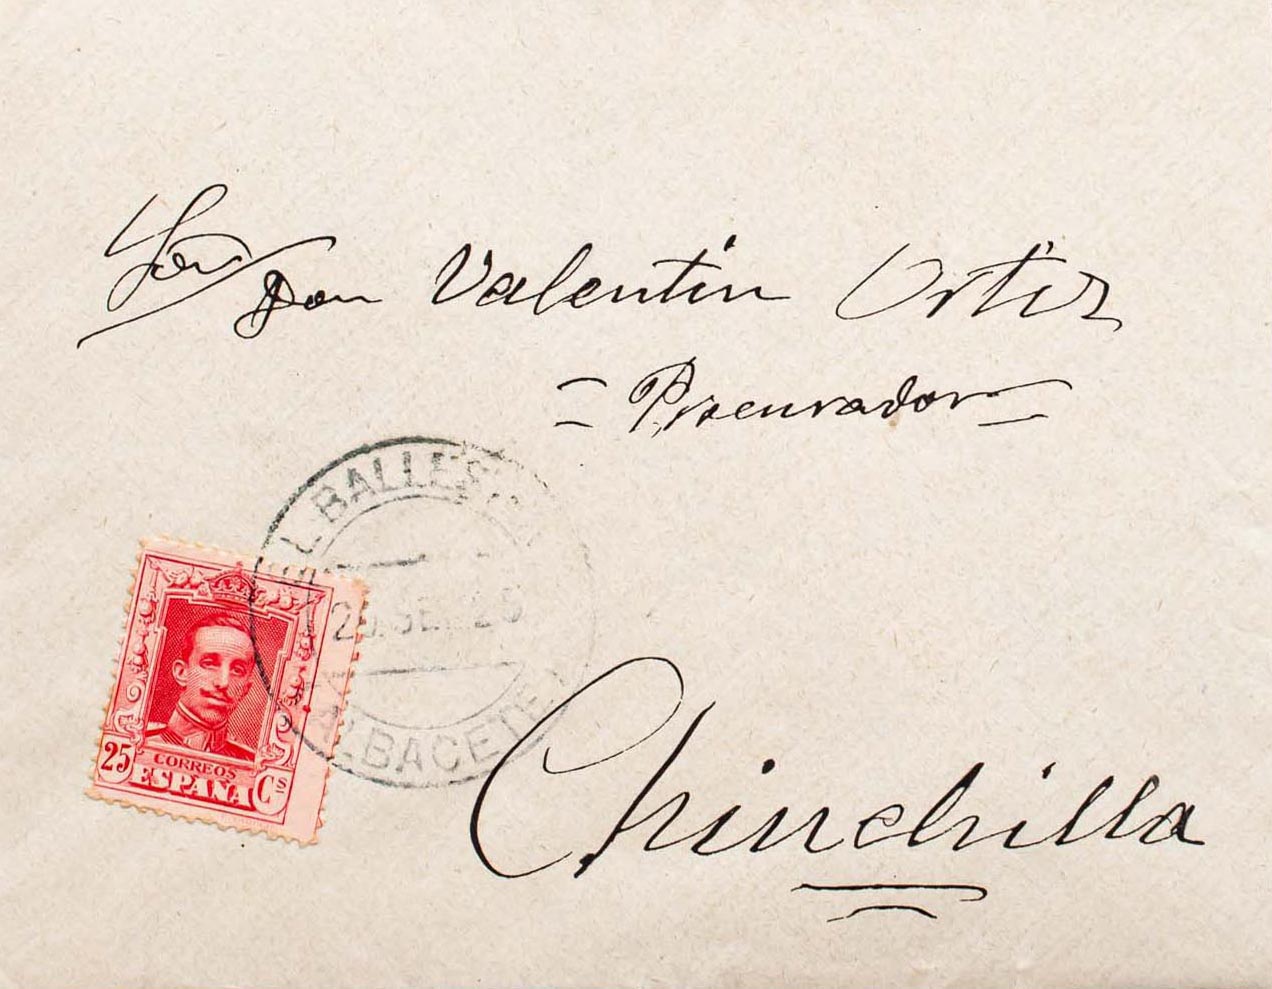 Sor Don Valentin Ortiz
= Procurador =
L BALLESTE
2 SE 26
ALBACETE
25 CORREOS Cs
ESPAÑA
Chinchilla